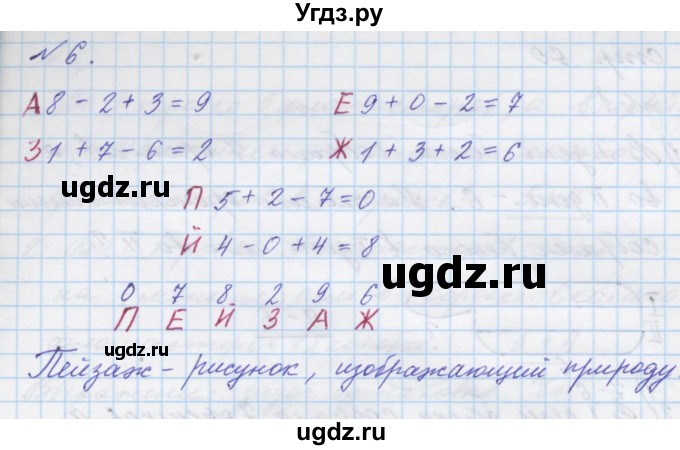 Угдз.ру
№ 6.
А 8 - 2 + 3 = 9 Е 9 + 0 - 2 = 7
З 1 + 7 - 6 = 2 Ж 1 + 3 + 2 = 6
ugdz.ru
П 5 + 2 - 7 = 0
Й 4 - 0 + 4 = 8
ugdz.ru
0 7 8 2 9 6
П Е Й З А Ж
ugdz.ru
Пейзаж - рисунок, изображающий природу.
ugdz.ru